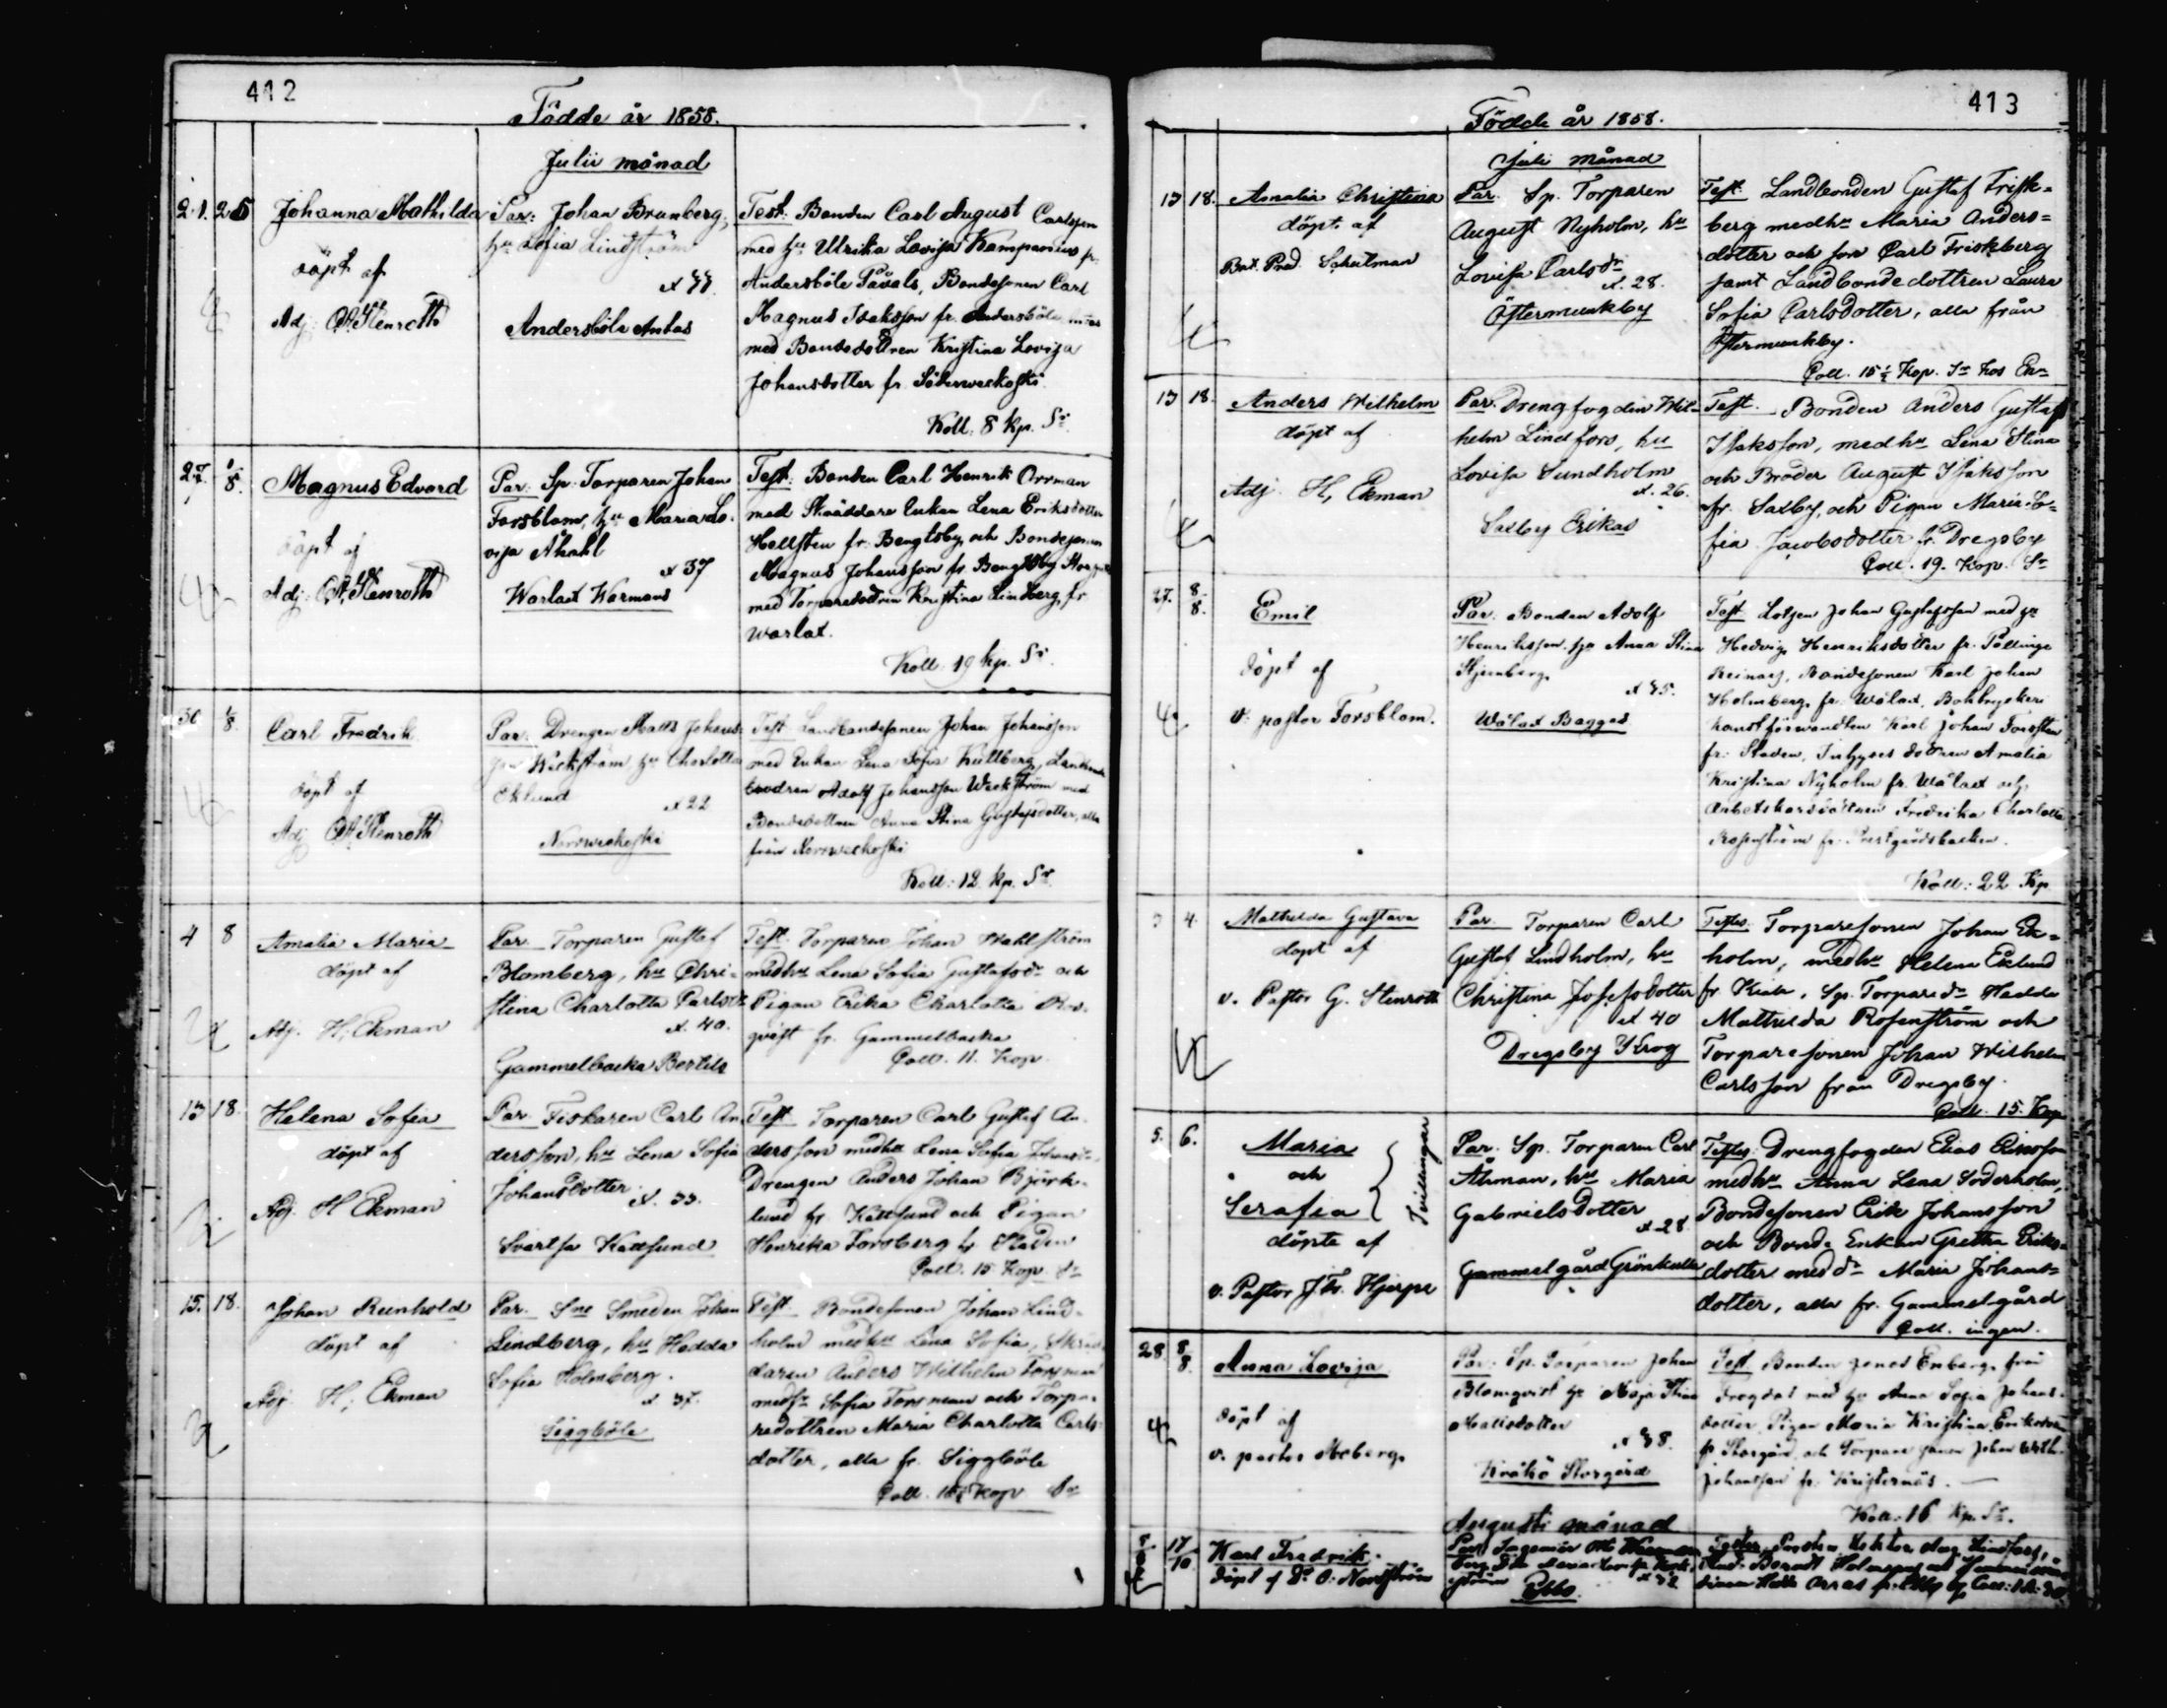 412
Födde år 1858.
Julii månad
21. 25 Johanna Mathilda
döpt af
Adj: Stenroth
Par: Johan Brunberg,
hu Sofia Lindström
Andersböle Antas
Test: Bonden Carl August Carlsson
med hu Ulrika Lovisa Kampanius fr.
Andersböle Påvals, Bondesonen Carl
Magnus Isaksson fr. Andersböle
med Bondedottren Kristina Lovisa
Johansdotter fr. Söderweckoski
Koll. 8 kp. Sr.
27. 1/8. Magnus Edvard
döpt af
Adj: Stenroth
Par: Sp. Torparen Johan
Forsblom, hu Maria Lo-
visa Åhahl
x 37
Warlax Warmans
Test: Bonden Carl Henrik Orrman
med Skräddare Enkan Lena Eriksdotter
Hellsten fr. Bengtsby, och Bondesonen
Magnus Johansson fr. Bengtsby
med Torparedottren Kristina Lindberg fr.
Warlax.
Koll. 19 kp. Sr.
30 1/8. Carl Fredrik
döpt af
Adj. Stenroth
Par: Drengen Matts Johans-
son Wickström, hu Charlotta
Eklund
x 22
Norrweckoski
Test: Landbondesonen Johan Johansson
med Enkan Lena Sofia Kullberg,
brodren Adolf Johansson Weckström med
Bondedottren Anna Stina Gustafsdotter, alla
från Norrweckoski
Koll: 12 kp. Sr.
4 8 Amalia Maria
döpt af
Adj. H, Ekman
Par. Torparen Gustaf
Blomberg, hu Chri-
stina Charlotta Carlsdr
x. 40.
Gammelbacka Bertils
Test. Torparen Johan Wahlström
medhu Lena Sofia Gustafsdr och
Pigan Erika Charlotta Ros-
qvist fr. Gammelbacka
Coll. 11. Kop.
13 18. Helena Sofia
döpt af
Adj. H Ekman
Par Fiskaren Carl An-
dersson, hu Lena Sofia
Johansdotter
x. 33.
Svartså Kattsund
Test. Torparen Carl Gustaf An-
dersson medhu Lena Sofia
Drengen Anders Johan Björk-
lund fr. Kattsund och Pigan
Henrika Forsberg fr. Staden
Coll. 15 Kop. Sr
15. 18. Johan Reinhold
döpt af
Adj H, Ekman
Par. Sne Smeden Johan
Lindberg, hu Hedda
Sofia Holmberg.
x 37.
Siggböle
Test. Bondesonen Johan Lind-
holm medhu Lena Sofia, Skräd-
daren Anders Wilhelm Forsman
medhr Sofia Forsman och Torpa-
redottren Maria Charlotta Carls-
dotter, alla fr. Siggböle
Coll. Kop Sr
413
Födde år 1858.
Juli månad
13 18. Amalia Christina
döpt af
Bat. Pred. Schulman
Par. Sp. Torparen
August Nyholm, hu
Lovisa Carlsdr
x. 28.
Östermunkby
Test. Landbonden Gustaf Frisk-
berg medhu Maria Anders-
dotter och son Carl Friskberg
samt Landbondedottren Laura
Sofia Carlsdotter, alla från
Östermunkby.
Coll. 15 1/2 Kop. Sr hos
13 18. Anders Wilhelm
döpt af
Adj H, Ekman
Par. Drengfogden Wil-
helm Lindfors, hu
Lovisa Sundholm
x. 26.
Saxby Erikas
Test. Bonden Anders Gustaf
Isaksson, medhu Lena Stina
och Broder August Isaksson
fr. Saxby, och Pigan Maria So-
fia Jacobsdotter fr. Dregsby
Coll. 19. Kop. Sr
27. 8/8. Emil
döpt af
v. pastor Forsblom.
Par. Bonden Adolf
Henriksson, hu Anna Stina
Stjernberg.
x 35.
Wålax Baggas
Test Lotsen Johan Gustafsson med hu
Hedvig Henriksdotter fr. Pellinge
Bondesonen Karl Johan
Holmberg fr. Wålax, Boktryckeri
konstförwandten Karl Johan Forsten
fr. Staden, Inhyses dottren Amalia
Kristina Nyholm fr. Wålax och
Arbetskarlsdottren Fredrika Charlotta
Rosenström fr. Prestgårdsbacken.
Koll: 22 Kp
3 4. Mathilda Gustava
döpt af
v. Pastor G. Stenroth
Par. Torparen Carl
Gustaf Lindholm, hu
Christina Josefsdotter
x 40
Dregsby Skrog
Testes. Torparesonen Johan Ek-
holm, medhu Helena Eklund
fr Kiala, Sp. Torparedr Hedda
Mathilda Rosenström och
Torparesonen Johan Wilhelm
Carlsson från Dregsby.
Coll. 15. Kop
5. 6. Maria
och
Serafia
Tvillingar
döpte af
v. Pastor J. Fr. Hjerpe
Par. Sp. Torparen Carl
Åkman, hu Maria
Gabrielsdotter
x 28
Gammelgård Grönkulla
Testes: Drengfogden Elias Eliasson
medhu Anna Lena Söderholm,
Bondesonen Erik Johansson
och Bonde Enkan Gretha Eriks-
dotter med dr Maria Johans-
dotter, alla fr. Gammelgård
Coll. ingen.
28. 8/8. Anna Lovisa
döpt af
v. pastor Moberg.
Par: Sp. Torparen Johan
Blomqvist hu Maja Stina
Mattsdotter
x 38.
Kråkö Storgård
Test Bonden Jonas Enberg från
med hu Anna Sofia Johans-
dotter, Pigan Maria Kristina Eriksdr
fr. Storgård och Torpare sonen Johan Wilh.
Johansson fr. Kristernäs.
Koll: 16 Kp. Sr.
Augusti månad
8/8 17/10 Karl Fredrik.
döpt af Dr. O. Nordström
Ebbo.